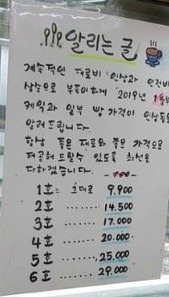 알리는 글
계속적인 재료비 인상과 인건비
상승으로 부득이하게 '2019년
케익과 일부 빵 가격이 인상됨을
알려드립니다.
항상 좋은 재료와 좋은 가격으로
제공해 드릴수 있도록 최선을
다하겠습니다.
1호 = 그대로 9,900
2호 ........ 14,500
3호 ........ 17,000
4호 ........ 20,000
5호 ........ 25,000
6호 ........ 29,000